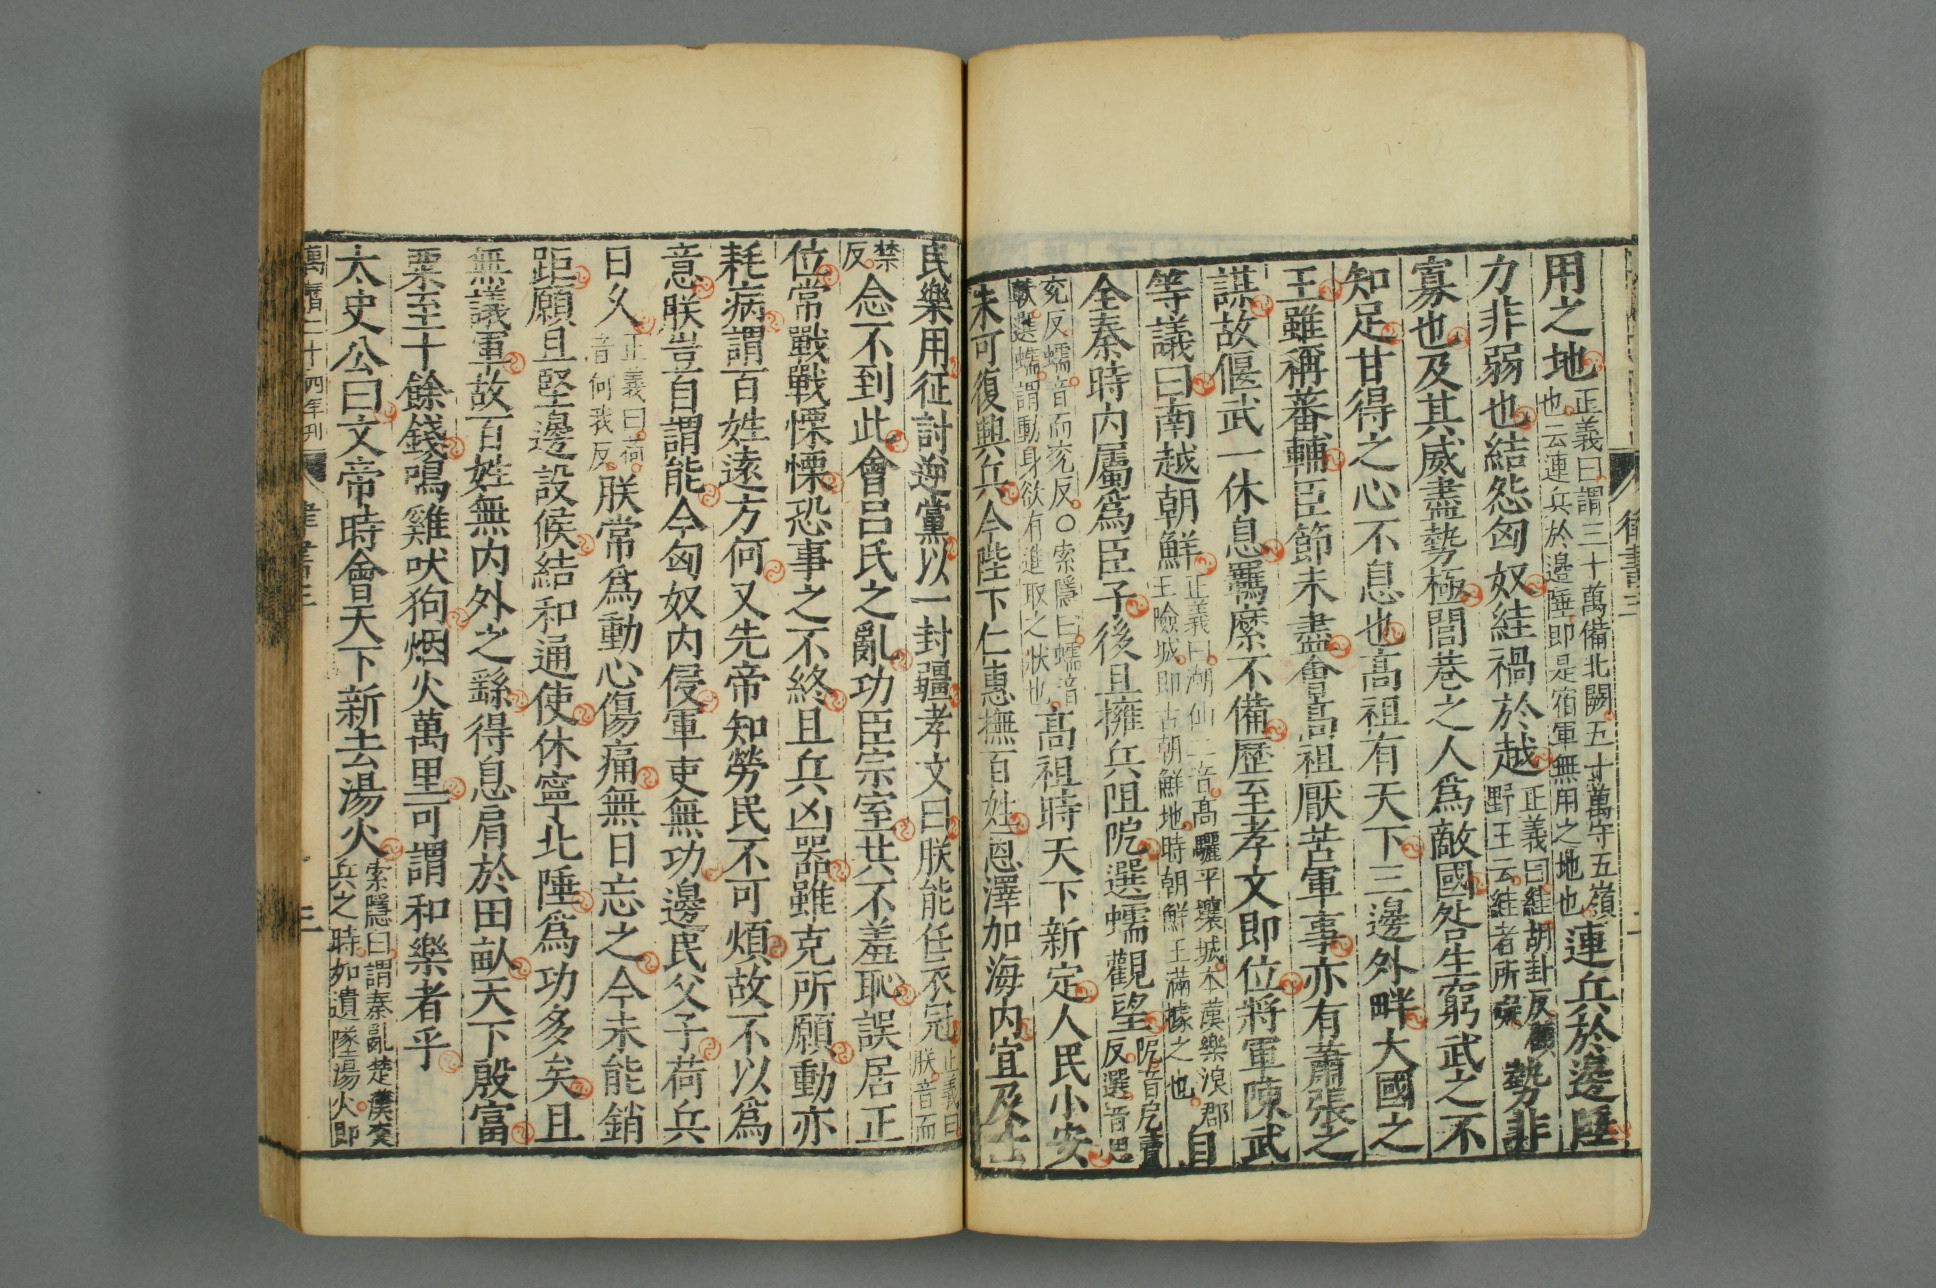 用之地正義曰謂三十萬備北闕五十萬守五嶺也云連兵於邊陲即是宿軍無用之地也連兵於邊陲
力非弱也結怨匈奴絓禍於越正義曰絓胡卦反顧野王云絓者所㝵勢非
寡也及其威盡勢極閭巷之人爲敵國咎生窮武之不
知足甘得之心不息也高祖有天下三邊外畔大國之
王雖稱蕃輔臣節未盡會高祖厭苦軍事亦有蕭張之
謀故偃武一休息羈縻不備歷至孝文即位將軍陳武
等議曰南越朝鮮正義曰潮仙二音高驪平壤城本漢樂浪郡王險城即古朝鮮地時朝鮮王滿據之也自
全秦時内屬爲臣子後且擁兵阻阸選蠕觀望阸音厄賣反選音思
兖反蠕音而兖反○索隱曰蠕音軟選蠕謂動身欲有進取之狀也高祖時天下新定人民小安
未可復興兵今陛下仁惠撫百姓恩澤加海内宜及士
民樂用征討逆黨以一封疆孝文曰朕能任衣冠正義曰朕音而
禁反念不到此會呂氏之亂功臣宗室共不羞恥誤居正
位常戰戰慄慄恐事之不終且兵凶器雖克所願動亦
耗病謂百姓遠方何又先帝知勞民不可煩故不以爲
意朕豈自謂能今匈奴内侵軍吏無功邊民父子荷兵
日久正義曰荷音何我反朕常爲動心傷痛無日忘之今未能銷
距願且堅邊設候結和通使休寧北陲爲功多矣且
無議軍故百姓無内外之繇得息肩於田畝天下殷富
粟至十餘錢鳴雞吠狗烟火萬里可謂和樂者乎
太史公曰文帝時會天下新去湯火索隱曰謂秦亂楚漢交兵之時如遺墜湯火即
萬曆二十四年刊 律書三 三